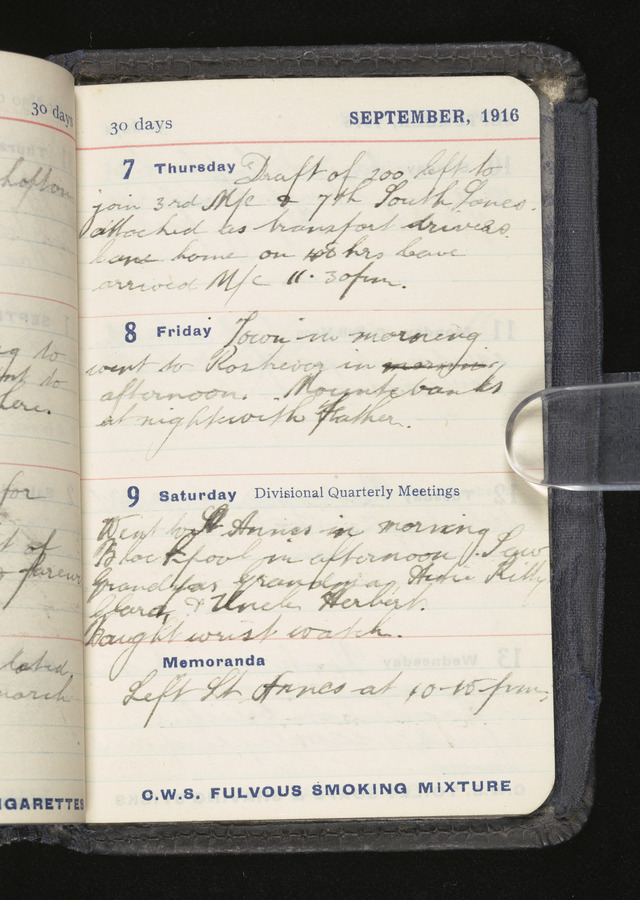 30 days
hofton
g to
nt to
here.
for
t of
lated
march
IGARETTES
30 days SEPTEMBER, 1916
7 Thursday Draft of 200 left to
join 3rd M/c & 7th South Lancs.
attached as transport drivers.
came home on 48 hrs leave
arrived M/c 11.30pm.
8 Friday Town in morning
went to Roshervor in morning
afternoon. Mountebanks
at night with Father.
9 Saturday Divisional Quarterly Meetings
Went to St Annes in morning
Blackpool in afternoon. Saw
Grandpas grandma, Auntie Kitty
Ward, & Uncle Herbert.
Bought wrist watch.
Memoranda
Left St Annes at 10-15 pm
C.W.S. FULVOUS SMOKING MIXTURE